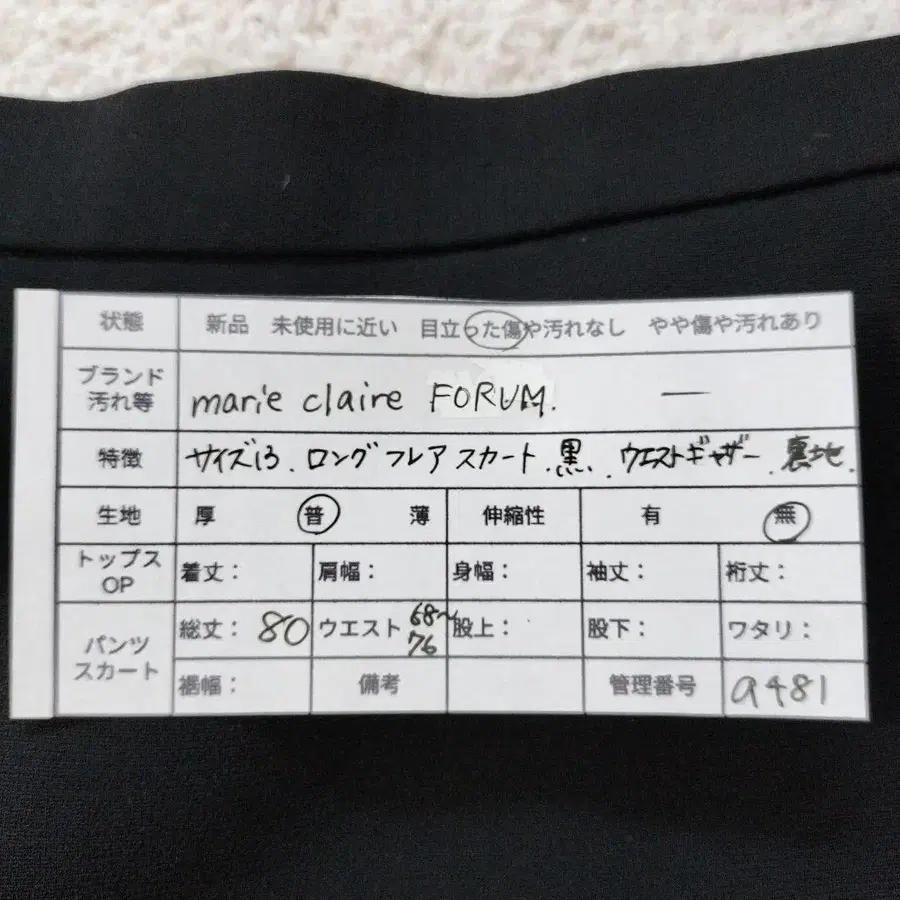 状態 新品 未使用に近い 目立った傷や汚れなし やや傷や汚れあり
ブランド
汚れ等 marie claire FORUM. —
特徴 サイズ13. ロング フレア スカート. 黒. ウエストギャザー. 裏地.
生地 厚 普 薄 伸縮性 有 無
トップス
OP 着丈: 肩幅: 身幅: 袖丈: 裄丈:
パンツ
スカート 総丈: 80 ウエスト 68~76 股上: 股下: ワタリ:
裾幅: 備考 管理番号 a481